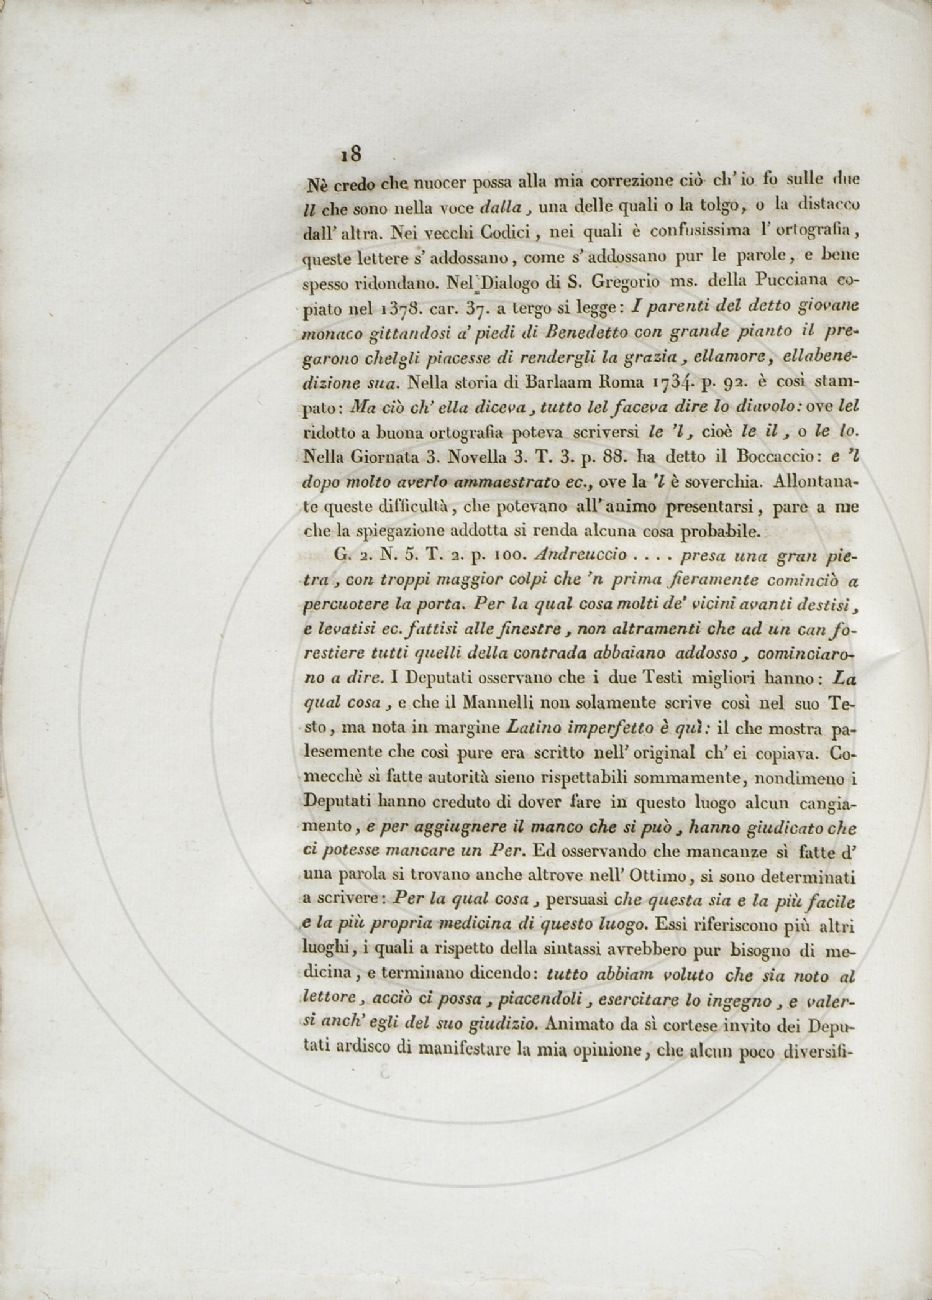 18
Nè credo che nuocer possa alla mia correzione ciò ch' io fo sulle due
ll che sono nella voce dalla, una delle quali o la tolgo, o la distacco
dall' altra. Nei vecchi Codici, nei quali è confusissima l' ortografia,
queste lettere s' addossano, come s' addossano pur le parole, e bene
spesso ridondano. Nel Dialogo di S. Gregorio ms. della Pucciana co-
piato nel 1378. car. 37. a tergo si legge: I parenti del detto giovane
monaco gittandosi a' piedi di Benedetto con grande pianto il pre-
garono chelgli piacesse di rendergli la grazia, ellamore, ellabene-
dizione sua. Nella storia di Barlaam Roma 1734. p. 92. è così stam-
pato: Ma ciò ch' ella diceva, tutto lel faceva dire lo diavolo: ove lel
ridotto a buona ortografia poteva scriversi le 'l, cioè le il, o le lo.
Nella Giornata 3. Novella 3. T. 3. p. 88. ha detto il Boccaccio: e 'l
dopo molto averlo ammaestrato ec., ove la 'l è soverchia. Allontana-
te queste difficultà, che potevano all' animo presentarsi, pare a me
che la spiegazione addotta si renda alcuna cosa probabile.
G. 2. N. 5. T. 2. p. 100. Andreuccio .... presa una gran pie-
tra, con troppi maggior colpi che 'n prima fieramente cominciò a
percuotere la porta. Per la qual cosa molti de' vicini avanti destisi,
e levatisi ec. fattisi alle finestre, non altramenti che ad un can fo-
restiere tutti quelli della contrada abbaiano addosso, cominciaro-
no a dire. I Deputati osservano che i due Testi migliori hanno: La
qual cosa, e che il Mannelli non solamente scrive così nel suo Te-
sto, ma nota in margine Latino imperfetto è quì: il che mostra pa-
lesemente che così pure era scritto nell' original ch' ei copiava. Co-
mecchè sì fatte autorità sieno rispettabili sommamente, nondimeno i
Deputati hanno creduto di dover fare in questo luogo alcun cangia-
mento, e per aggiugnere il manco che si può, hanno giudicato che
ci potesse mancare un Per. Ed osservando che mancanze sì fatte d'
una parola si trovano anche altrove nell' Ottimo, si sono determinati
a scrivere: Per la qual cosa, persuasi che questa sia e la più facile
e la più propria medicina di questo luogo. Essi riferiscono più altri
luoghi, i quali a rispetto della sintassi avrebbero pur bisogno di me-
dicina, e terminano dicendo: tutto abbiam voluto che sia noto al
lettore, acciò ci possa, piacendoli, esercitare lo ingegno, e valer-
si anch' egli del suo giudizio. Animato da sì cortese invito dei Depu-
tati ardisco di manifestare la mia opinione, che alcun poco diversifi-